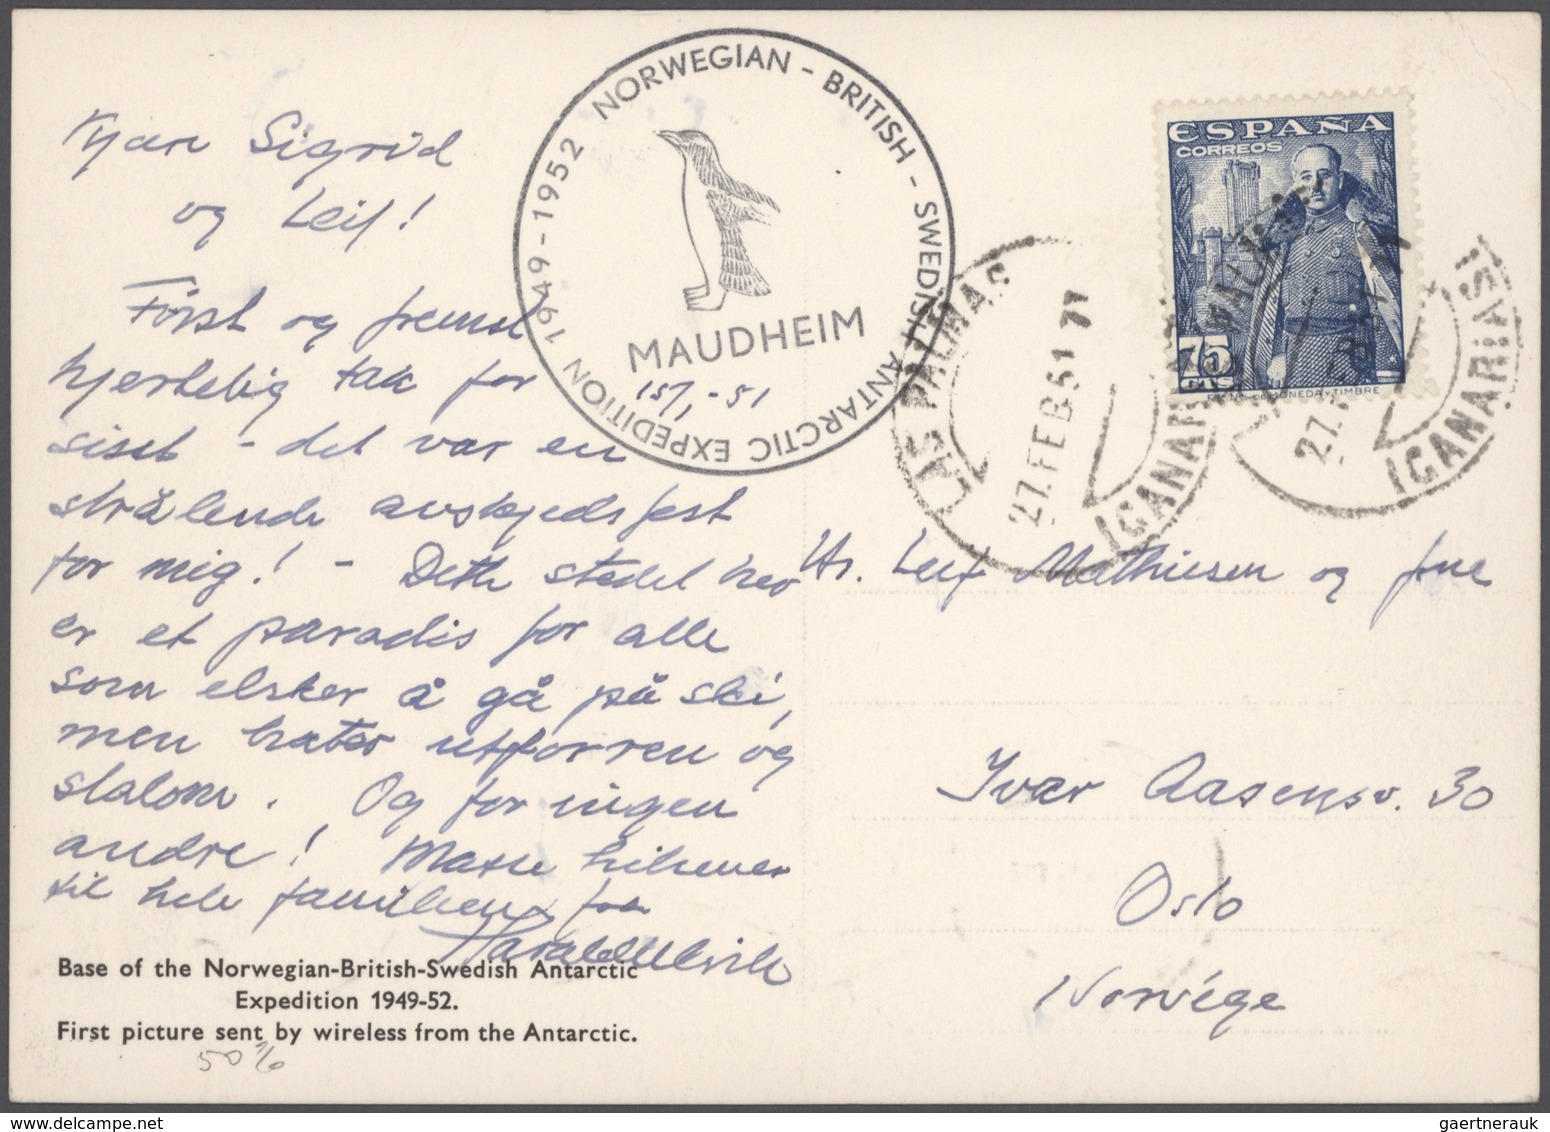 Kjære Sigrid
og Leif!
Først og fremst
hjertelig tak for
sist - det var en
strålende avskjedsfest
for mig! - Dette stedet her
er et paradis for alle
som elsker å gå på ski,
men hater utforren og
slalom. Og for ingen
andre! Masse hilsener
til hele familien fra
Harald Ulrik
Base of the Norwegian-British-Swedish Antarctic
Expedition 1949-52.
First picture sent by wireless from the Antarctic.
50%
1949-1952 NORWEGIAN - BRITISH - SWEDISH ANTARCTIC EXPEDITION
MAUDHEIM
15/1-51
ESPAÑA
CORREOS
75
CTS
F.N.M. DE MONEDA Y TIMBRE
LAS PALMAS
27.FEB51
(CANARIAS)
27.
(CANARIAS)
Hr. Leif Mathiesen og frue
Ivar Aasensv. 30
Oslo
Norvége
gaertnerauk